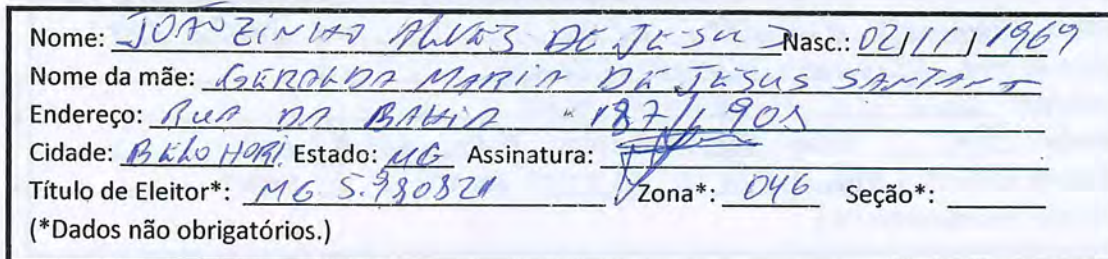 Nome: JOAOZINHO ALVES DE JESUS Nasc.: 02/11/1969
Nome da mãe: GERALDA MARIA DE JESUS SANTANA
Endereço: RUA DA BAHIA 187/1901
Cidade: BELO HORI. Estado: MG Assinatura:
Título de Eleitor*: MG 5.980821 Zona*: 046 Seção*:
(*Dados não obrigatórios.)